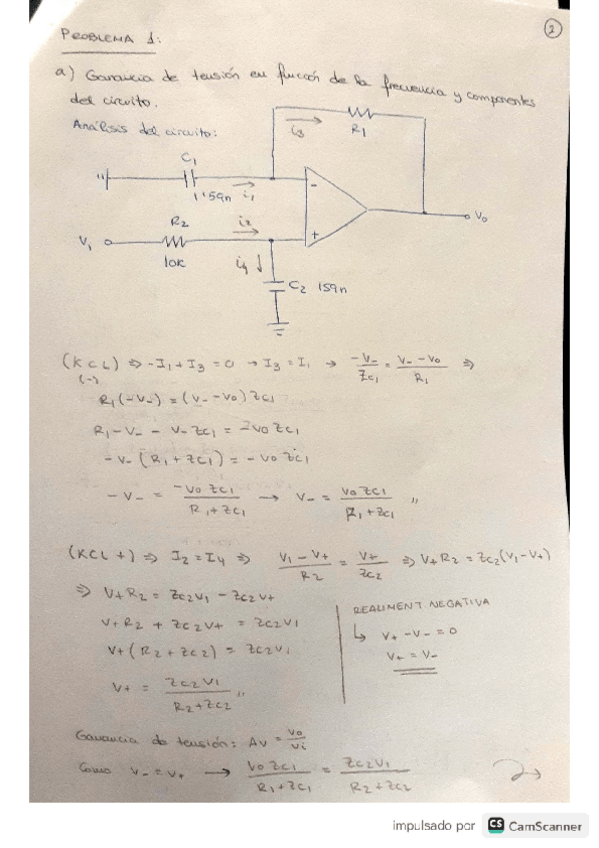 2
PROBLEMA 1:
a) Ganancia de tensión en función de la frecuencia y componentes
del circuito.
Análisis del circuito:
i3
R1
C1
1'59n
i1
-
R2
i2
V1
10K
i4
+
Vo
C2 159n
(KCL) ⇒ -I1 + I3 = 0 → I3 = I1 → -V-/Zc1 = V- - Vo/R1 ⇒
(-)
R1(-V-) = (V- - Vo) Zc1
R1 - V- - V- Zc1 = -Vo Zc1
-V- (R1 + Zc1) = -Vo Zc1
-V- = -Vo Zc1/R1 + Zc1 → V- = Vo Zc1/R1 + Zc1 ,,
(KCL +) ⇒ I2 = I4 ⇒ V1 - V+/R2 = V+/Zc2 ⇒ V+ R2 = Zc2 (V1 - V+)
⇒ V+ R2 = Zc2 V1 - Zc2 V+
V+ R2 + Zc2 V+ = Zc2 V1
V+ (R2 + Zc2) = Zc2 V1
V+ = Zc2 V1/R2 + Zc2 ,,
REALIMENT. NEGATIVA
↳ V+ - V- = 0
V+ = V-
Ganancia de tensión: Av = Vo/Vi
Como V- = V+ → Vo Zc1/R1 + Zc1 = Zc2 V1/R2 + Zc2
impulsado por CS CamScanner